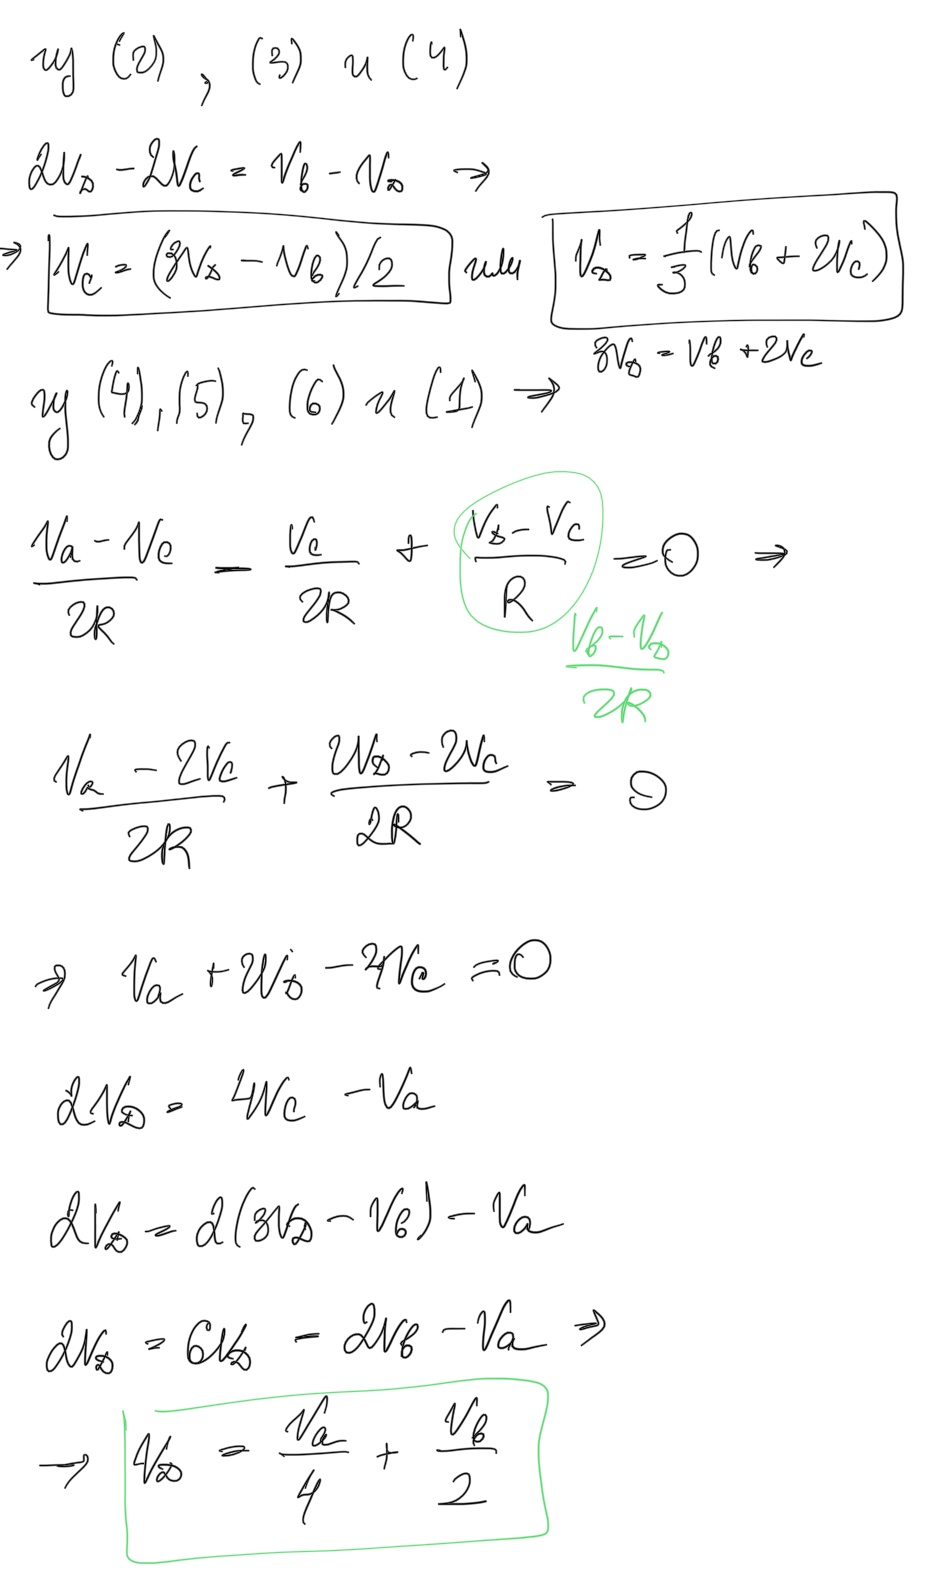 из (2), (3) и (4)
2V_D - 2V_C = V_B - V_D →
→ V_C = (3V_D - V_B)/2 или V_D = 1/3 (V_B + 2V_C)
3V_D = V_B + 2V_C
из (4), (5), (6) и (1) →
(V_a - V_C)/2R - V_C/2R + (V_D - V_C)/R = 0 ⇒
(V_B - V_D)/2R
(V_a - 2V_C)/2R + (2V_D - 2V_C)/2R = 0
⇒ V_a + 2V_D - 4V_C = 0
2V_D = 4V_C - V_a
2V_D = 2(3V_D - V_B) - V_a
2V_D = 6V_D - 2V_B - V_a ⇒
→ V_D = V_a/4 + V_B/2